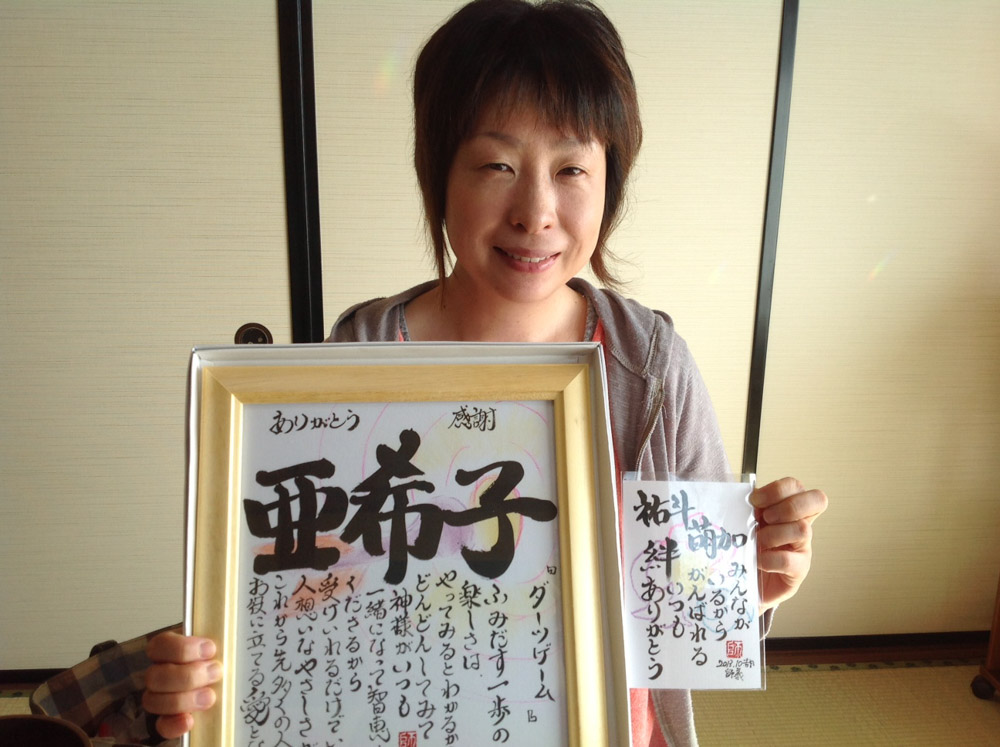 ありがとう
感謝
亜希子
「ダーツゲーム」
ふみだす一歩の
楽しさは
やってみるとわかるか
どんどんしてみて
神様がいつも
一緒になって智恵
くださるから
受けいれるだけで
人想いなやさしさ
これから先多くの人
お役に立てる愛と
祐斗
萌加
絆
みんなが
いるから
がんばれる
いつも
ありがとう